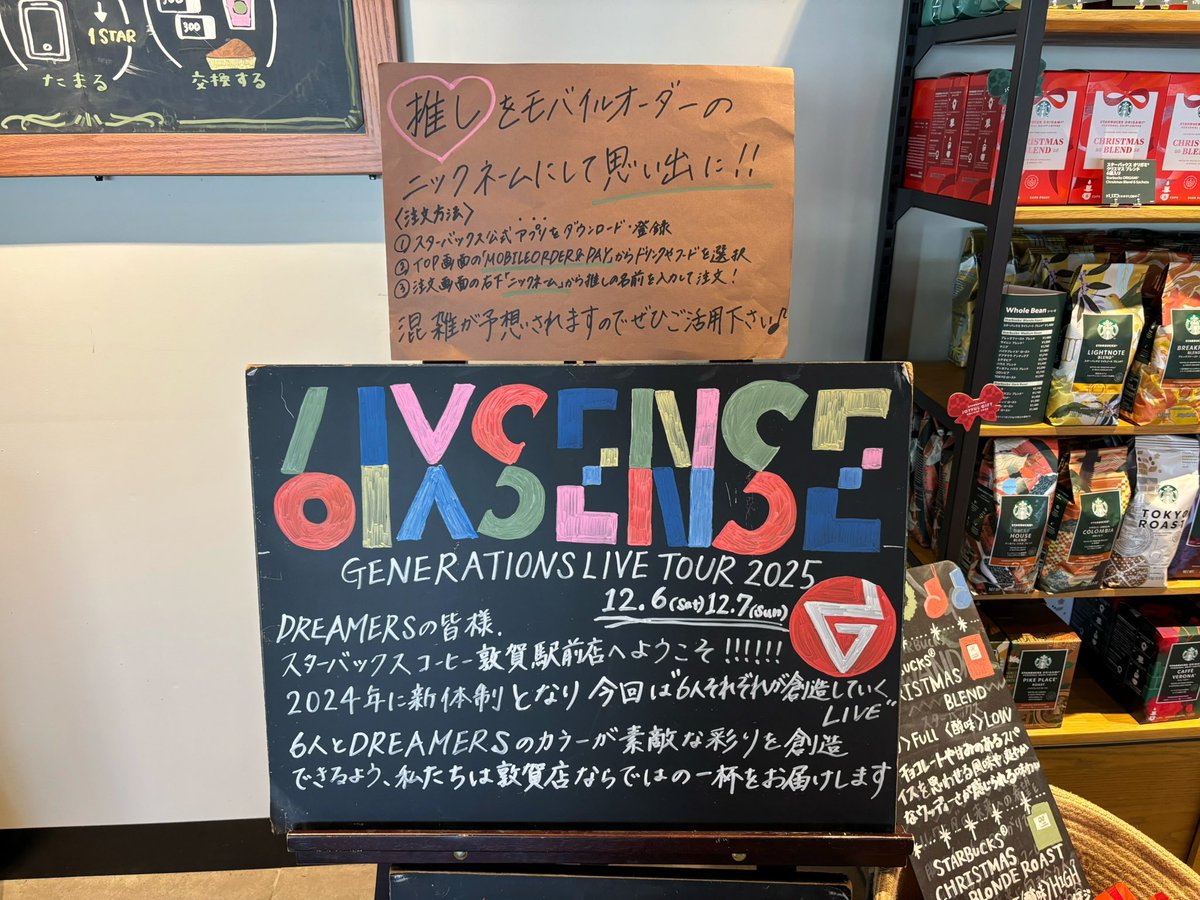 1 STAR
たまる
300
300
交換する
推しをモバイルオーダーの
ニックネームにして思い出に!!
〈注文方法〉
① スターバックス公式アプリをダウンロード・登録
② TOP画面の「MOBILE ORDER & PAY」からドリンクやフードを選択
③ 注文画面の右下「ニックネーム」から推しの名前を入力して注文!
混雑が予想されますのでぜひご活用下さい♪
6IXSENSE
GENERATIONS LIVE TOUR 2025
12.6(Sat) 12.7(Sun)
G
DREAMERSの皆様.
スターバックス コーヒー 敦賀駅前店へようこそ!!!!!!
2024年に新体制となり 今回は"6人それぞれが創造していく
LIVE"
6人とDREAMERSのカラーが素敵な彩りを創造
できるよう、私たちは敦賀店ならではの一杯をお届けします
STARBUCKS ORIGAMI
CHRISTMAS
BLEND
CHRISTMAS
BLEND
スターバックス オリガミ
クリスマス ブレンド
Whole Bean
LIGHTNOTE
BLEND
BREAKFAST
JOYFUL GIFT
HOUSE
BLEND
COLOMBIA
TOKYO
ROAST
PIKE PLACE
CAFFÈ
VERONA
CHRISTMAS
BLEND
FULL 〈酸味〉LOW
STARBUCKS®
CHRISTMAS
BLONDE ROAST
〈酸味〉HIGH